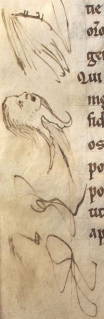 ne
om̄
ge
Qui
me
fid
os
po
po
ut
ap